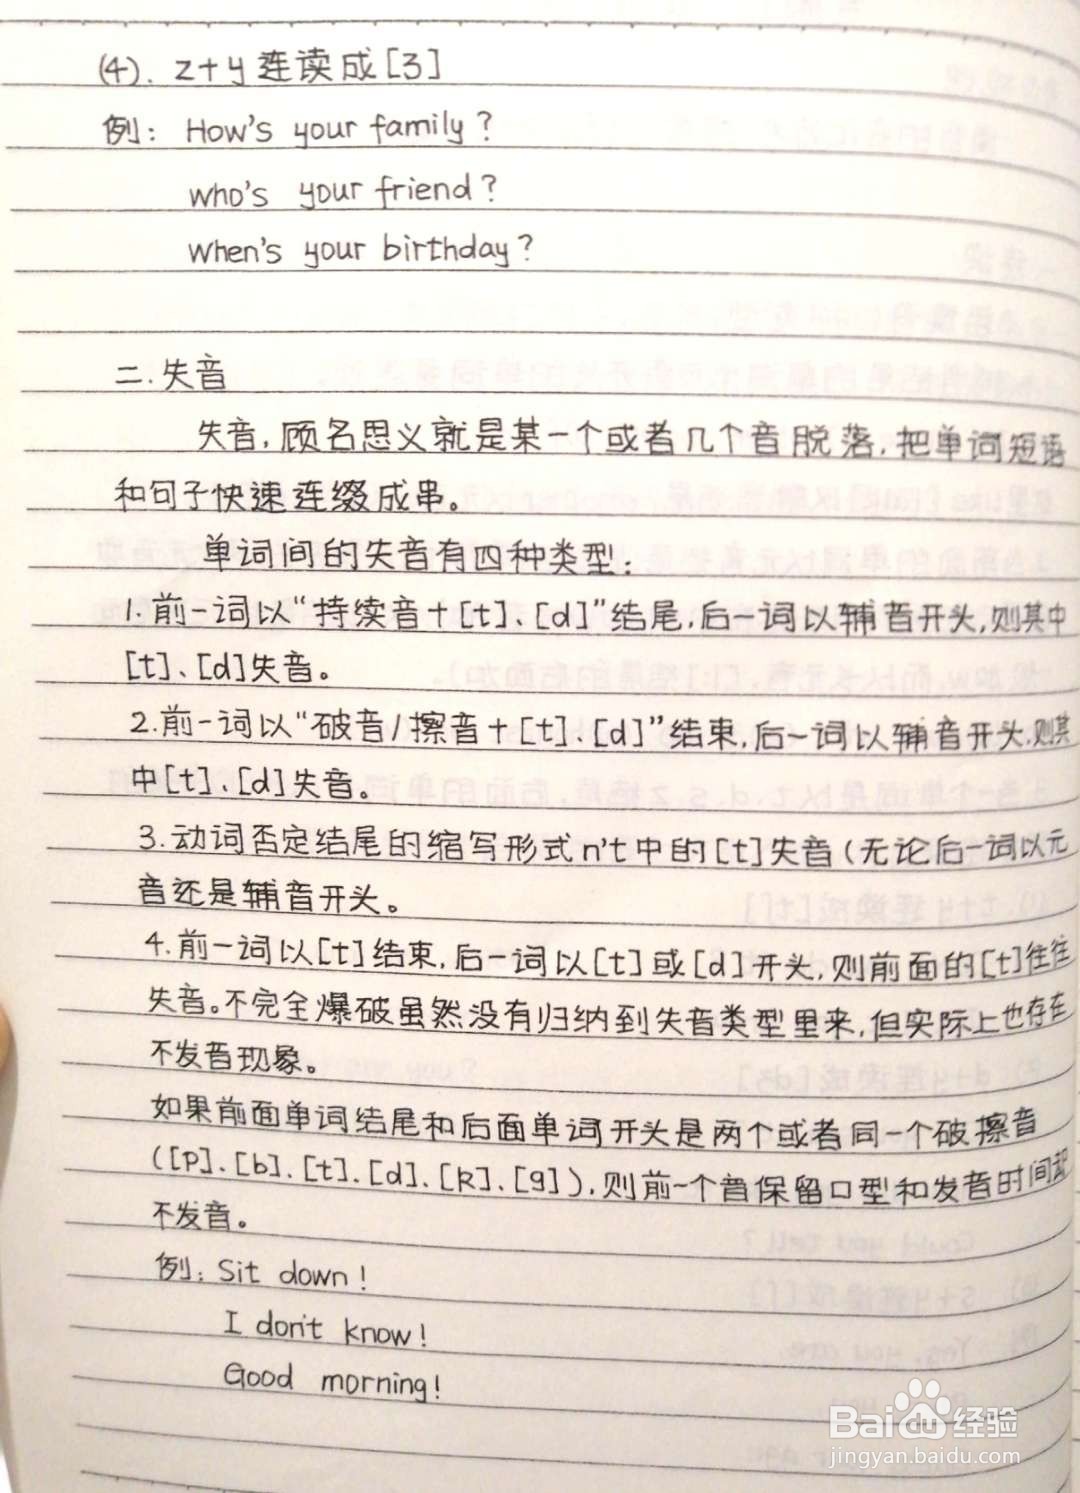 (4). z+y连读成[3]
例: How's your family?
who's your friend?
When's your birthday?
二.失音
失音,顾名思义就是某一个或者几个音脱落,把单词短语
和句子快速连缀成串。
单词间的失音有四种类型:
1.前一词以“持续音+[t]、[d]”结尾,后一词以辅音开头,则其中
[t]、[d]失音。
2.前一词以“破音/擦音+[t]、[d]”结束,后一词以辅音开头,则其
中[t]、[d]失音。
3.动词否定结尾的缩写形式n't中的[t]失音(无论后一词以元
音还是辅音开头。
4.前一词以[t]结束,后一词以[t]或[d]开头,则前面的[t]往往
失音。不完全爆破虽然没有归纳到失音类型里来,但实际上也存在
不发音现象。
如果前面单词结尾和后面单词开头是两个或者同一个破擦音
([p]、[b]、[t]、[d]、[k]、[g]),则前一个音保留口型和发音时间
不发音。
例: Sit down!
I don't know!
Good morning!
Baidu经验
jingyan.baidu.com